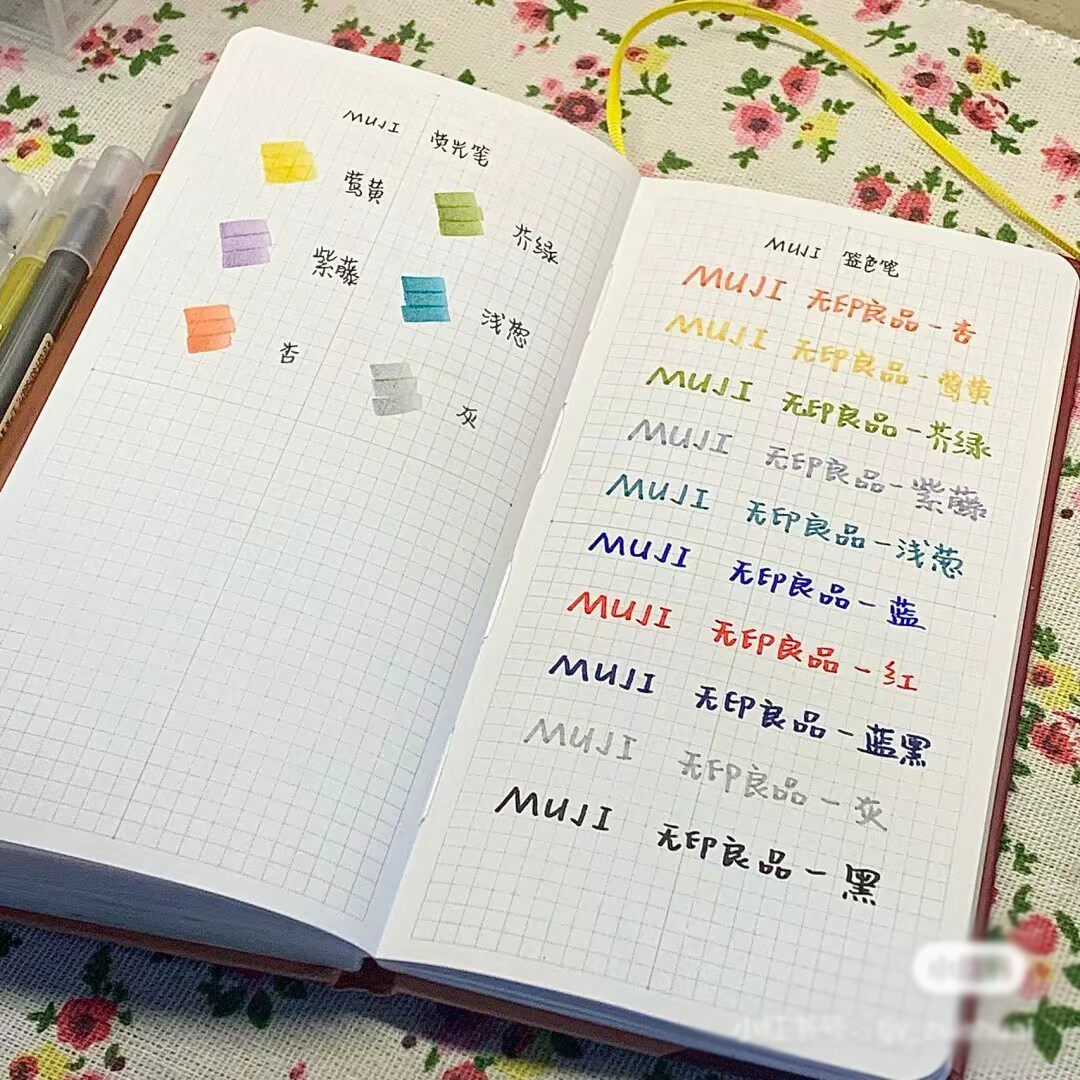 MUJI 荧光笔
莺黄
芥绿
紫藤
浅葱
杏
灰
MUJI 签色笔
MUJI 无印良品-杏
MUJI 无印良品-莺黄
MUJI 无印良品-芥绿
MUJI 无印良品-紫藤
MUJI 无印良品-浅葱
MUJI 无印良品-蓝
MUJI 无印良品-红
MUJI 无印良品-蓝黑
MUJI 无印良品-灰
MUJI 无印良品-黑